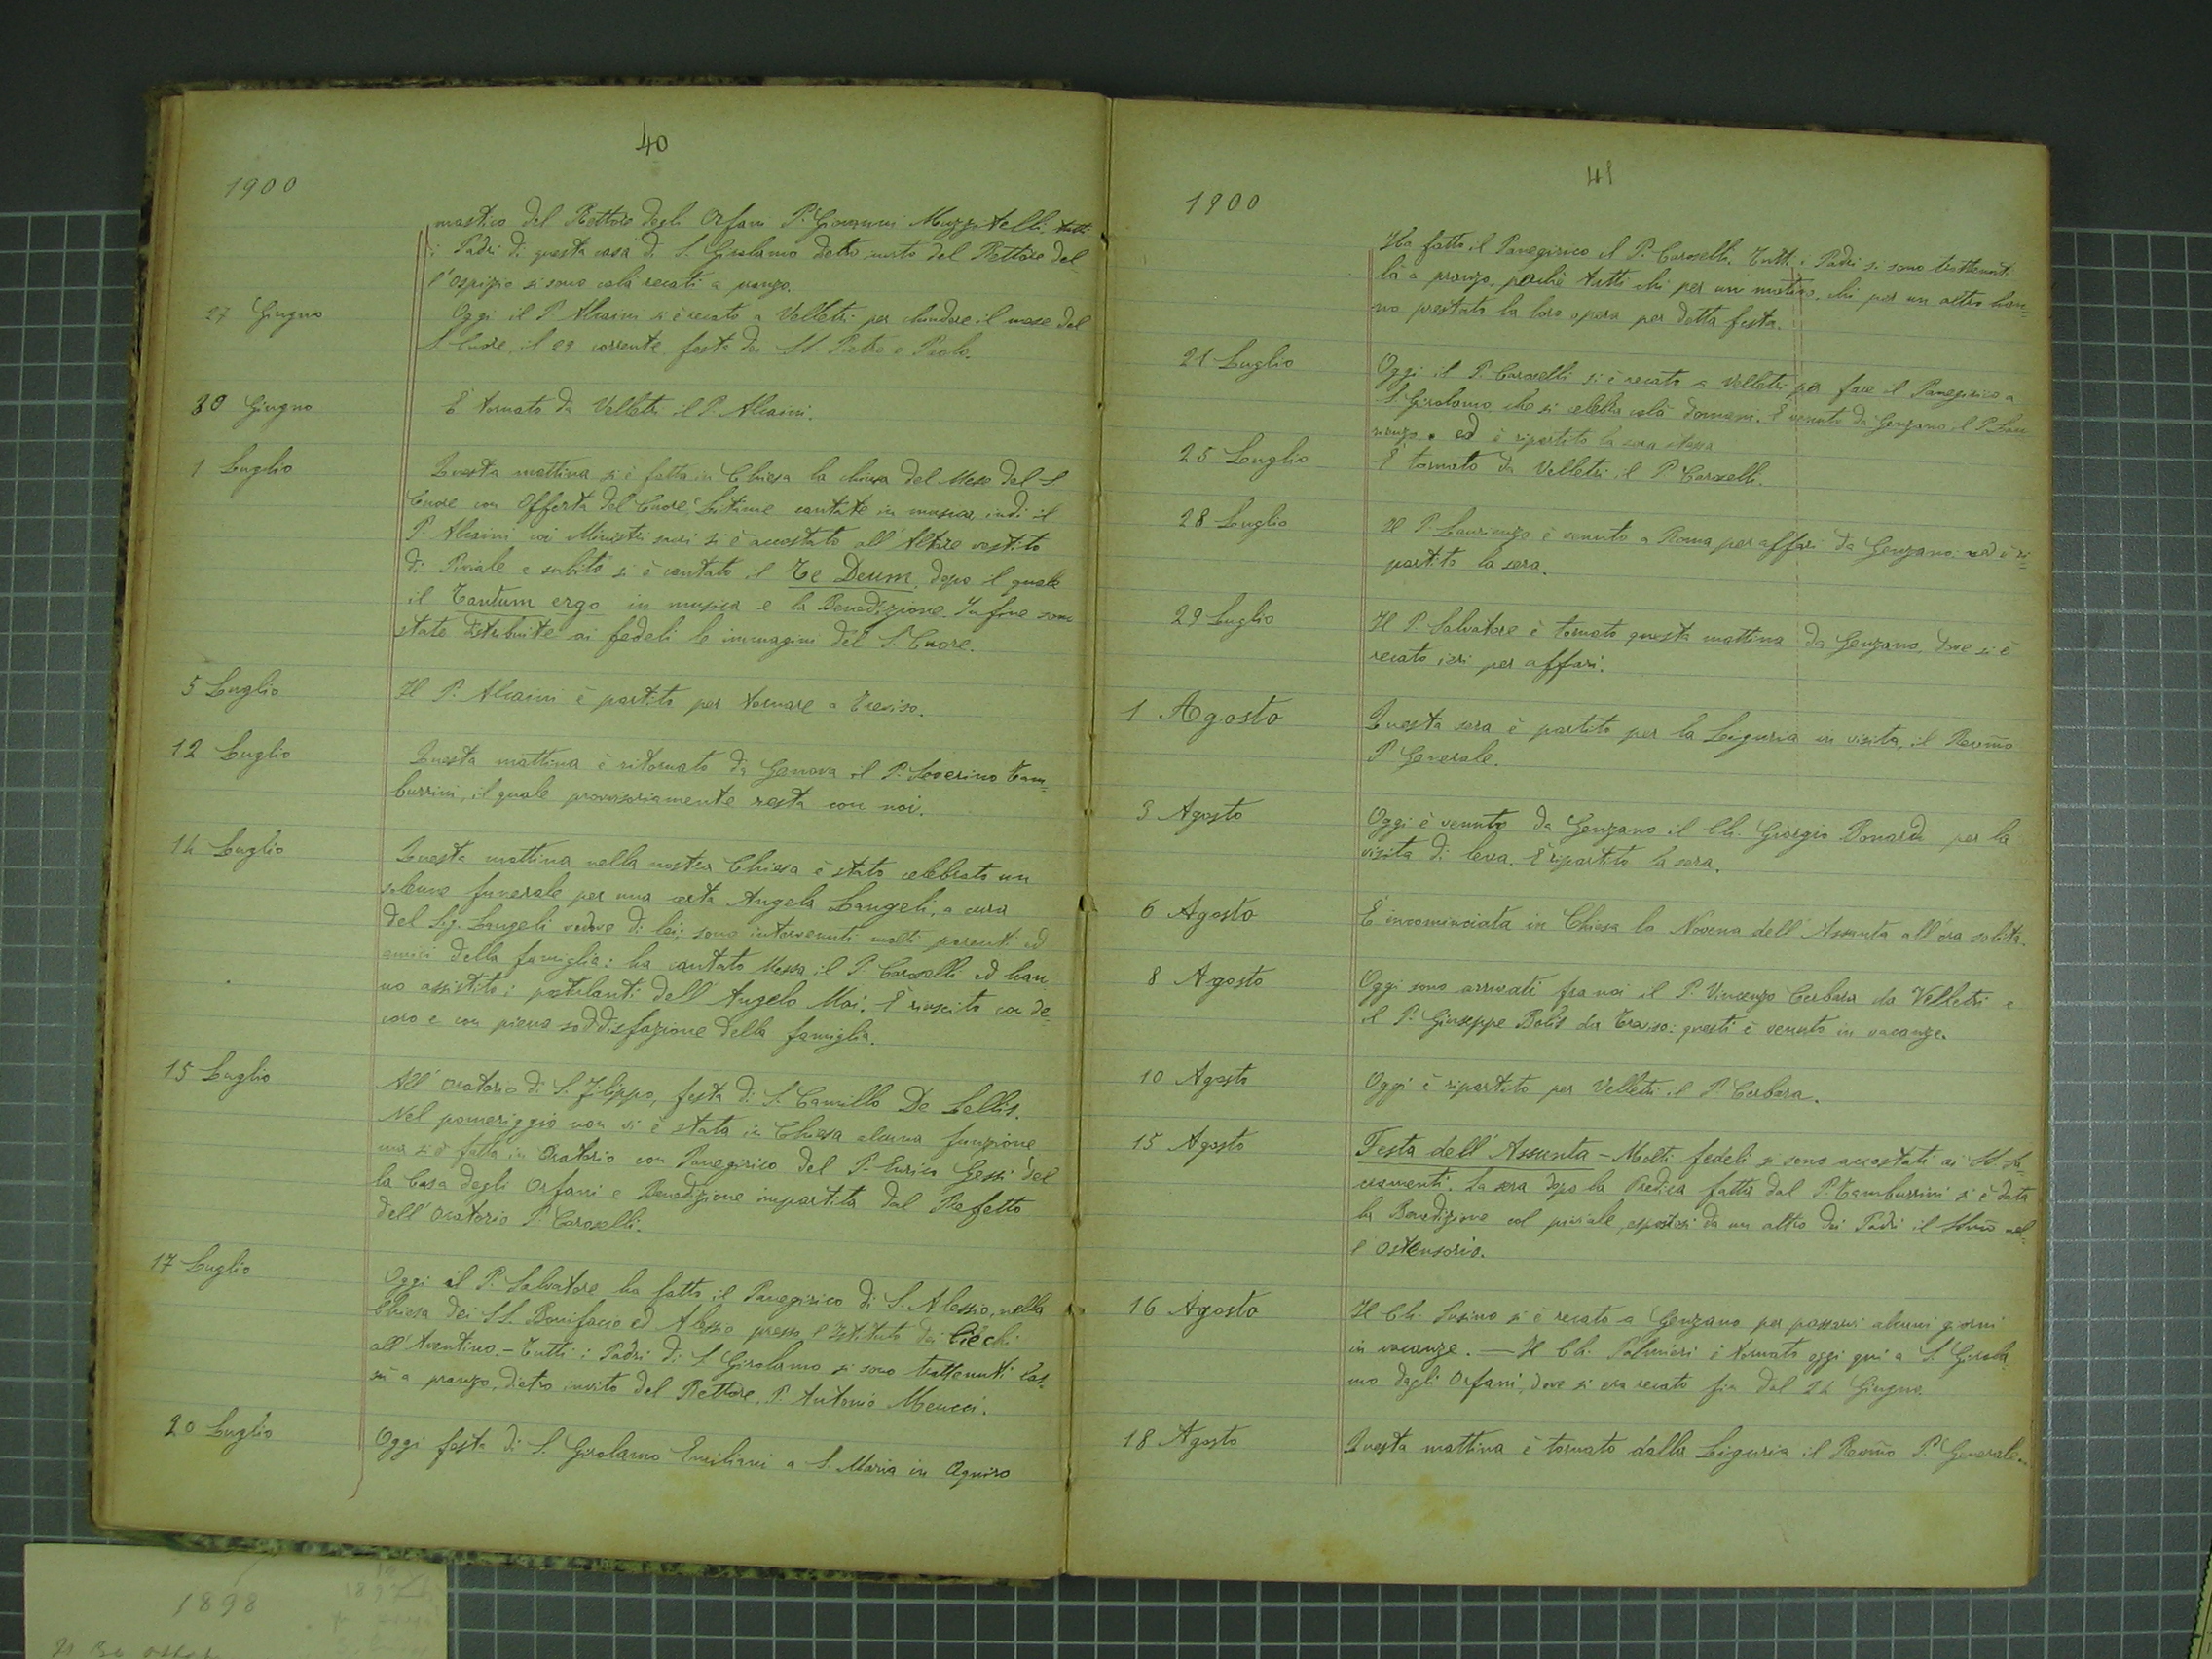 40
1900
mastico del Rettore degli Orfani P. Giovanni Muzzitelli, tutti
i Padri di questa casa di S. Girolamo dietro invito del Rettore del-
l'Ospizio si sono colà recati a pranzo.
27 Giugno Oggi il P. Alcaini si è recato a Velletri per chiudere il mese del
S. Cuore, il 29 corrente festa dei SS. Pietro e Paolo.
30 Giugno È tornato da Velletri il P. Alcaini.
1 Luglio Questa mattina si è fatta in Chiesa la chiusa del Mese del S.
Cuore con Offerta del Cuore, Litanie cantate in musica, indi il
P. Alcaini coi Ministri sacri si è accostato all'Altare vestito
di Piviale e subito si è cantato il Te Deum, dopo il quale
il Tantum ergo in musica e la Benedizione. In fine sono
state distribuite ai fedeli le immagini del S. Cuore.
5 Luglio Il P. Alcaini è partito per tornare a Treviso.
12 Luglio Questa mattina è ritornato da Genova il P. Severino Tam=
burrini, il quale provvisoriamente resta con noi.
14 Luglio Questa mattina nella nostra Chiesa è stato celebrato un
solenne funerale per una certa Angela Langeli, a cura
del Sig. Langeli vedovo di lei; sono intervenuti molti parenti ed
amici della famiglia: ha cantato Messa il P. Caroselli ed han-
no assistito i postulanti dell'Angelo Mai. È riuscito con de-
coro e con piena soddisfazione della famiglia.
15 Luglio All'Oratorio di S. Filippo, festa di S. Camillo De Lellis.
Nel pomeriggio non vi è stata in Chiesa alcuna funzione
ma si è fatta in Oratorio con Panegirico del P. Enrico Gessi del
la Casa degli Orfani e Benedizione impartita dal Prefetto
dell'Oratorio P. Caroselli.
17 Luglio Oggi il P. Salvatore ha fatto il Panegirico di S. Alessio, nella
Chiesa dei SS. Bonifacio ed Alessio presso l'Istituto dei Ciechi
all'Aventino. - Tutti i Padri di S. Girolamo si sono trattenuti las-
sù a pranzo, dietro invito del Rettore, P. Antonio Meucci.
20 Luglio Oggi festa di S. Girolamo Emiliani a S. Maria in Aquiro
41
1900
Ha fatto il Panegirico il P. Caroselli. Tutti i Padri si sono trattenuti
là a pranzo, perchè tutti chi per un motivo, chi per un altro han=
no prestato la loro opera per detta festa.
21 Luglio Oggi il P. Caroselli si è recato a Velletri per fare il Panegirico a
S. Girolamo che si celebra colà domani. È venuto da Genzano il P. Lau
renzo. ed è ripartito la sera stessa
25 Luglio È tornato da Velletri il P. Caroselli.
28 Luglio Il P. Laurenzo è venuto a Roma per affari da Genzano: ed è ri=
partito la sera.
29 Luglio Il P. Salvatore è tornato questa mattina da Genzano, dove si è
recato ieri per affari.
1 Agosto Questa sera è partito per la Liguria in visita, il Revm̃o
P. Generale.
3 Agosto Oggi è venuto da Genzano il Ch. Giorgio Bonardi per la
visita di leva. È ripartito la sera.
6 Agosto È incominciata in Chiesa la Novena dell'Assunta all'ora solita.
8 Agosto Oggi sono arrivati fra noi il P. Vincenzo Cerbara da Velletri e
il P. Giuseppe Bolis da Treviso: questi è venuto in vacanze.
10 Agosto Oggi è ripartito per Velletri il P. Cerbara.
15 Agosto Festa dell'Assunta - Molti fedeli si sono accostati ai SS. Sa-
cramenti. La sera dopo la Predica fatta dal P. Tamburrini si è data
la Benedizione col piviale, espostosi da un altro dei Padri il SSm̃o nel-
l'Ostensorio.
16 Agosto Il Ch. Susino si è recato a Genzano per passarvi alcuni giorni
in vacanze. — Il Ch. Palmieri è tornato oggi qui a S. Girola
mo dagli Orfani, dove si era recato fin dal 24 Giugno.
18 Agosto Questa mattina è tornato dalla Liguria il Revm̃o P. Generale.
1898